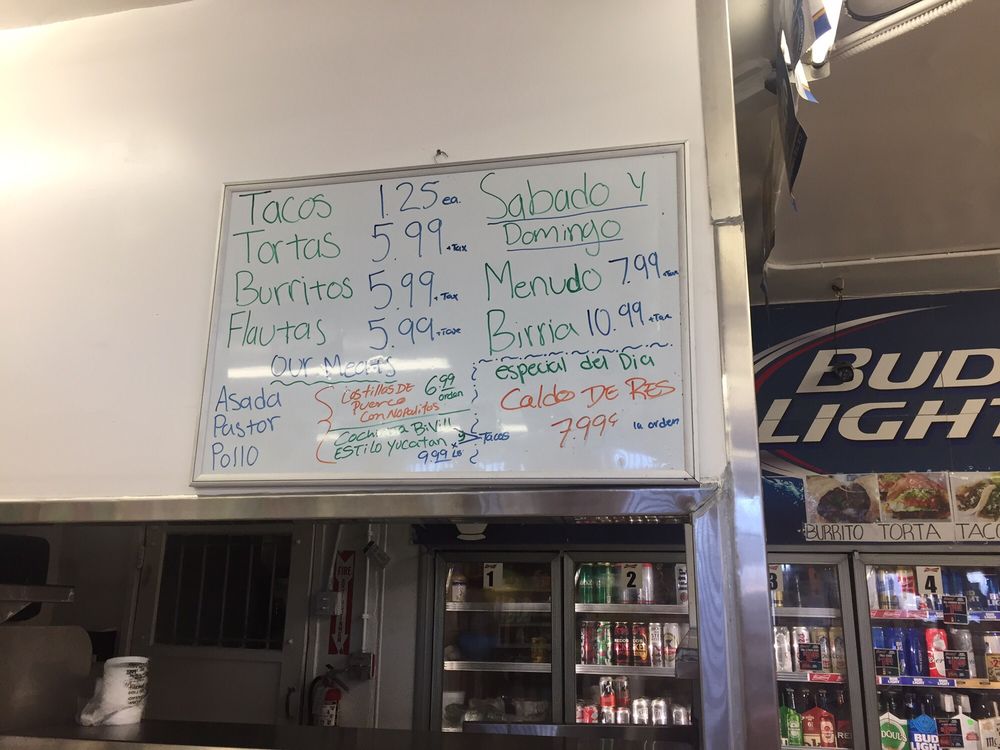 Tacos 1.25 ea.
Tortas 5.99 +Tax
Burritos 5.99 +Tax
Flautas 5.99 +Tax
Our Meats
Asada
Pastor
Pollo
Costillas DE
Puerco
Con Nopalitos
6.99
orden
Cochinita BiVill
ESTilo Yucatan
y Tacos
9.99 x LB
Sabado Y
Domingo
Menudo 7.99 +Tax
Birria 10.99 +Tax
especial del Dia
Caldo DE Res
7.99¢ la orden
BUD
LIGHT
BURRITO TORTA TACO
FIRE
1
2
3
4